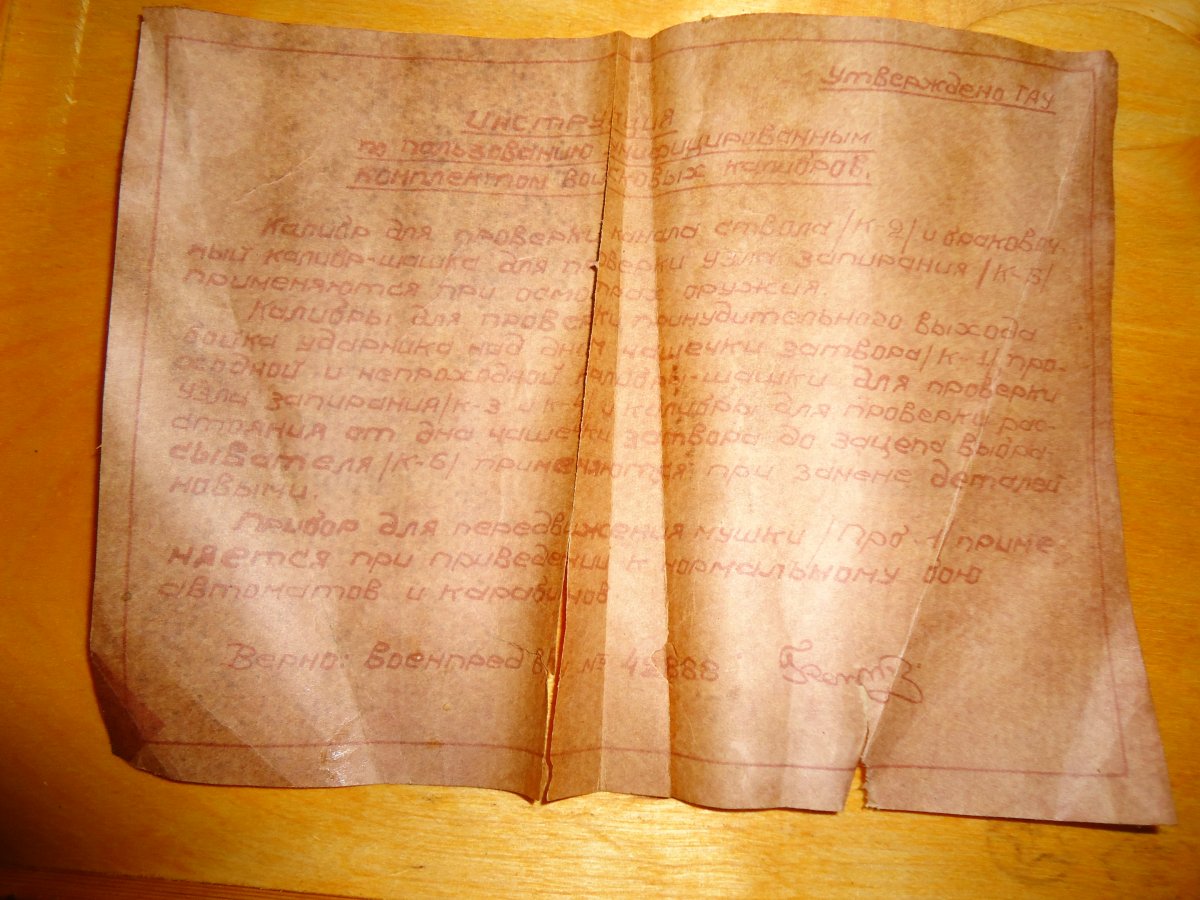 Утверждено ГАУ
Инструкция
по пользованию унифицированным
комплектом войсковых калибров.
Калибр для проверки канала ствола /К-2/ и браковоч-
ный калибр-шашка для проверки узла запирания /К-5/
применяются при осмотрах оружия.
Калибры для проверки принудительного выхода
бойка ударника над дном чашечки затвора /К-1/ про-
ходной и непроходной калибры-шашки для проверки
узла запирания /К-3 и К-4/ и калибры для проверки рас-
стояния от дна чашечки затвора до зацепа выбра-
сывателя /К-6/ применяются при замене деталей
новыми.
Прибор для передвижения мушки /Пр-1/ приме-
няется при приведении к нормальному бою
автоматов и карабинов
Верно: Военпред в/ч № 42888